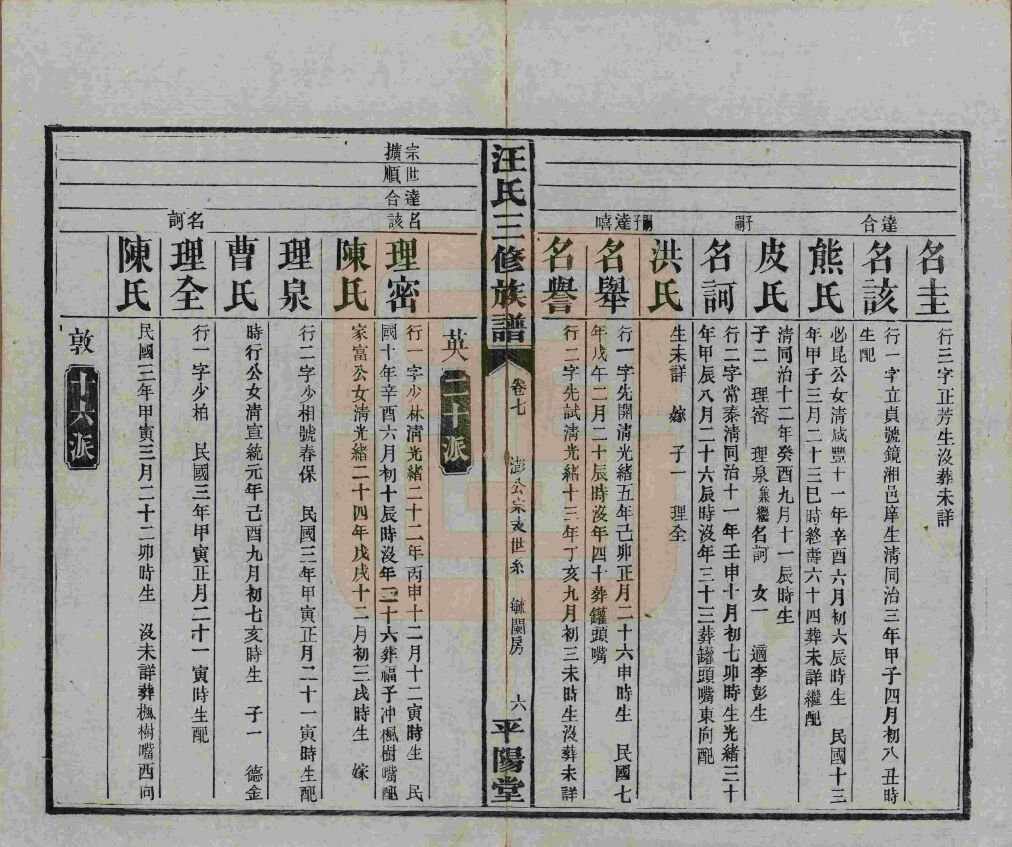 名圭
行三字正芳生沒葬未詳
達合
名該
行一字立貞號鏡湘邑庠生清同治三年甲子四月初八丑時
生配
熊氏
必昆公女清咸豐十一年辛酉六月初六辰時生 民國十三
年甲子三月二十三巳時終壽六十四葬未詳繼配
皮氏
清同治十二年癸酉九月十一辰時生
子二 理密 理泉兼繼名訶 女一 適李彭生
子嗣
名訶
行二字常秦清同治十一年壬申十月初七卯時生光緒三十
年甲辰八月二十六辰時沒年三十三葬罐頭嘴東向配
洪氏
生未詳 嫁 子一 理全
達嘻
名舉
行一字先開清光緒五年己卯正月二十六申時生 民國七
年戊午二月二十辰時沒年四十葬罐頭嘴
名譽
行二字先試清光緒十三年丁亥九月初三未時生沒葬未詳
汪氏三修族譜
卷七
澎公宗表世系 毓闌房
六
平陽堂
英 二十派
宗世達名
擴順合該
理密
行一字少林清光緒二十二年丙申十二月十二寅時生 民
國十年辛酉六月初十辰時沒年二十六葬福子冲楓樹嘴配
陳氏
家富公女清光緒二十四年戊戌十二月初三戌時生 嫁
理泉
行二字少相號春保 民國三年甲寅正月二十一寅時生配
曹氏
時行公女清宣統元年己酉九月初七亥時生 子一 德金
名訶
理全
行一字少柏 民國三年甲寅正月二十一寅時生配
陳氏
民國三年甲寅三月二十二卯時生 沒未詳葬楓樹嘴西向
敦 十六派